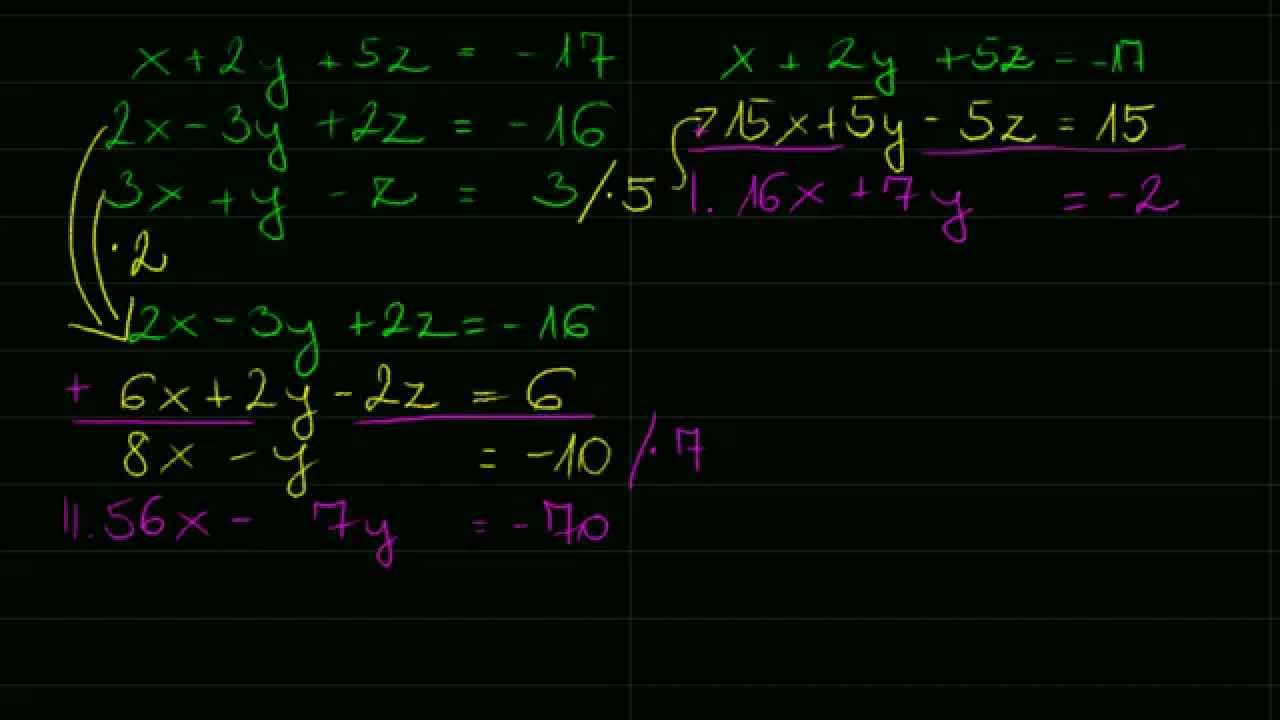 x + 2y + 5z = -17
2x - 3y + 2z = -16
3x + y - z = 3 /·5
·2
2x - 3y + 2z = -16
+ 6x + 2y - 2z = 6
8x - y = -10 /·7
II. 56x - 7y = -70
x + 2y + 5z = -17
15x + 5y - 5z = 15
I. 16x + 7y = -2